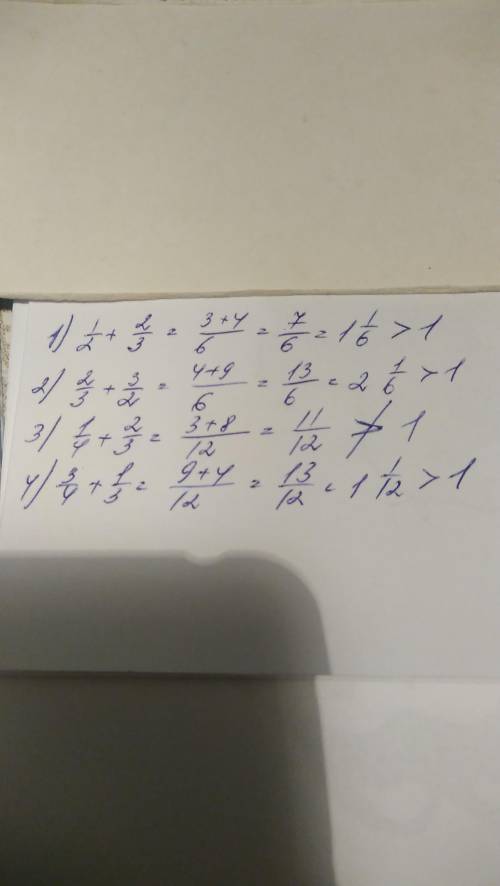 1) 1/2 + 2/3 = 3+4/6 = 7/6 = 1 1/6 > 1
2) 2/3 + 3/2 = 4+9/6 = 13/6 = 2 1/6 > 1
3) 1/4 + 2/3 = 3+8/12 = 11/12 ≯ 1
4) 3/4 + 1/3 = 9+4/12 = 13/12 = 1 1/12 > 1